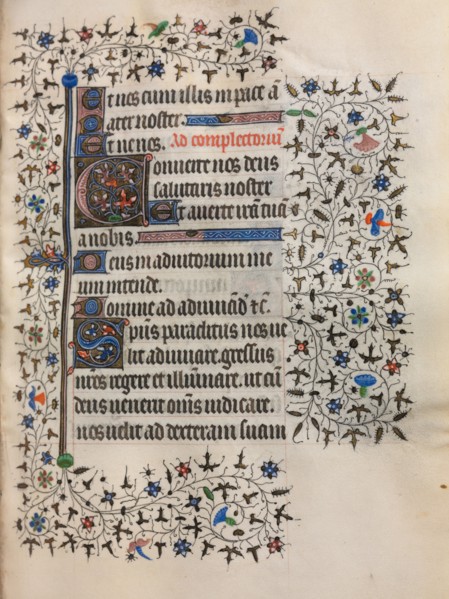 Et nos cum illis in pace ā
Pater noster.
Et ne nos. Ad complectoriū
Conuerte nos deus
salutaris noster
Et auerte irā tuā
a nobis.
Deus in adiutorium me
um intende.
Domine ad adiuuād̄ ⁊c.
Spūs paraclitus nos ue
lit adiuuare. gressus
nr̄os regere et illuminare. ut cū
deus uenerit om̄s iudicare.
nos uelit ad dexteram suam